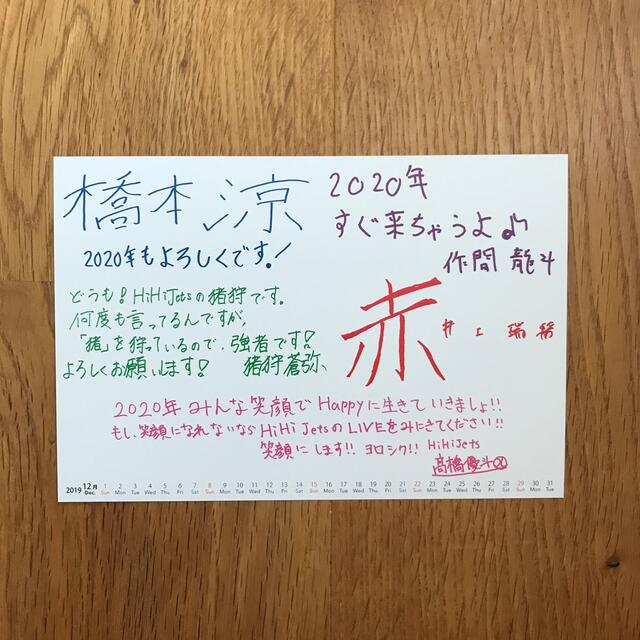 橋本涼
2020年もよろしくです!
2020年
すぐ来ちゃうよ♪
作間 龍斗
どうも!HiHiJetsの猪狩です。
何度も言ってるんですが、
「猪」を狩っているので、強者です!
よろしくお願いします! 猪狩蒼弥、
赤
井上瑞稀
2020年 みんな笑顔で Happyに生きていきましょ!!
もし、笑顔になれないなら HiHi JetsのLIVEをみにきてください!!
笑顔にします!! ヨロシク!! HiHiJets
高橋優斗
2019 12月 Dec. 1 2 3 4 5 6 7 8 9 10 11 12 13 14 15 16 17 18 19 20 21 22 23 24 25 26 27 28 29 30 31
Sun Mon Tue Wed Thu Fri Sat Sun Mon Tue Wed Thu Fri Sat Sun Mon Tue Wed Thu Fri Sat Sun Mon Tue Wed Thu Fri Sat Sun Mon Tue